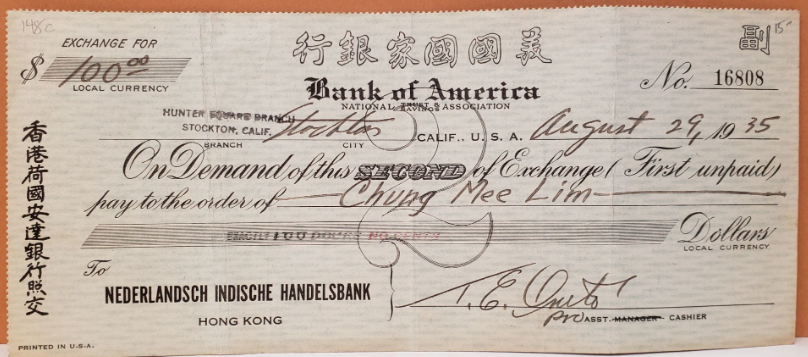 148c
15-
EXCHANGE FOR
$ 100.00
LOCAL CURRENCY
行銀家國國美
副
Bank of America
NATIONAL TRUST & SAVINGS ASSOCIATION
No. 16808
HUNTER SQUARE BRANCH
STOCKTON, CALIF.
Stockton CALIF., U. S. A. August 29, 1935
BRANCH CITY
On Demand of this SECOND of Exchange (First unpaid)
pay to the order of Chung Mee Lim
EXACTLY 100 DOLLARS NO CENTS Dollars
LOCAL CURRENCY
To
NEDERLANDSCH INDISCHE HANDELSBANK
HONG KONG
T. E.
pro ASST. MANAGER CASHIER
香港荷國安達銀行照交
PRINTED IN U.S.A.